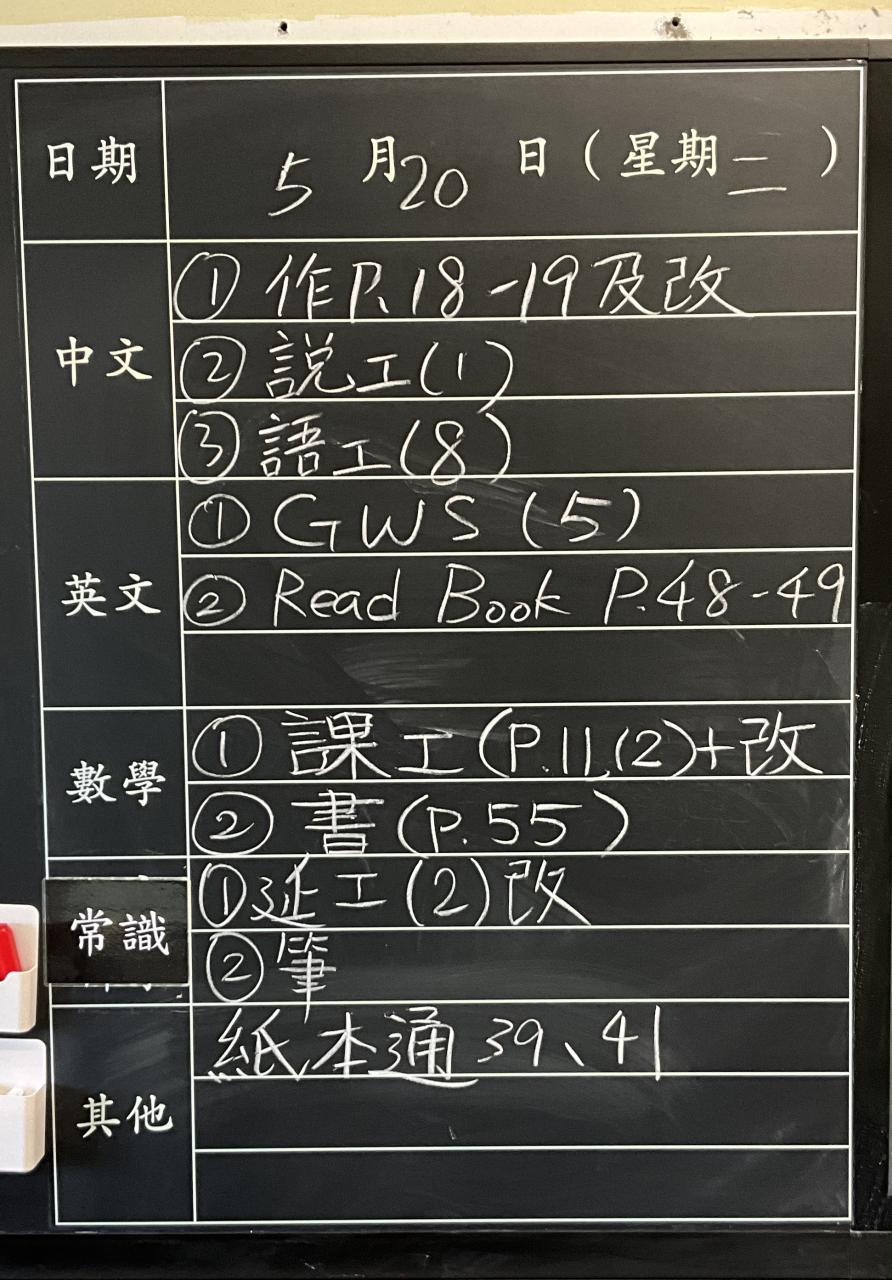 日期 5月20日（星期二）
中文 ① 作P.18-19及改
② 説工(1)
③ 語工(8)
英文 ① GWS (5)
② Read Book P.48-49
數學 ① 課工(P.11,(2)+改
② 書(P.55)
常識 ①延工(2)改
②筆
其他 紙本通 39、41